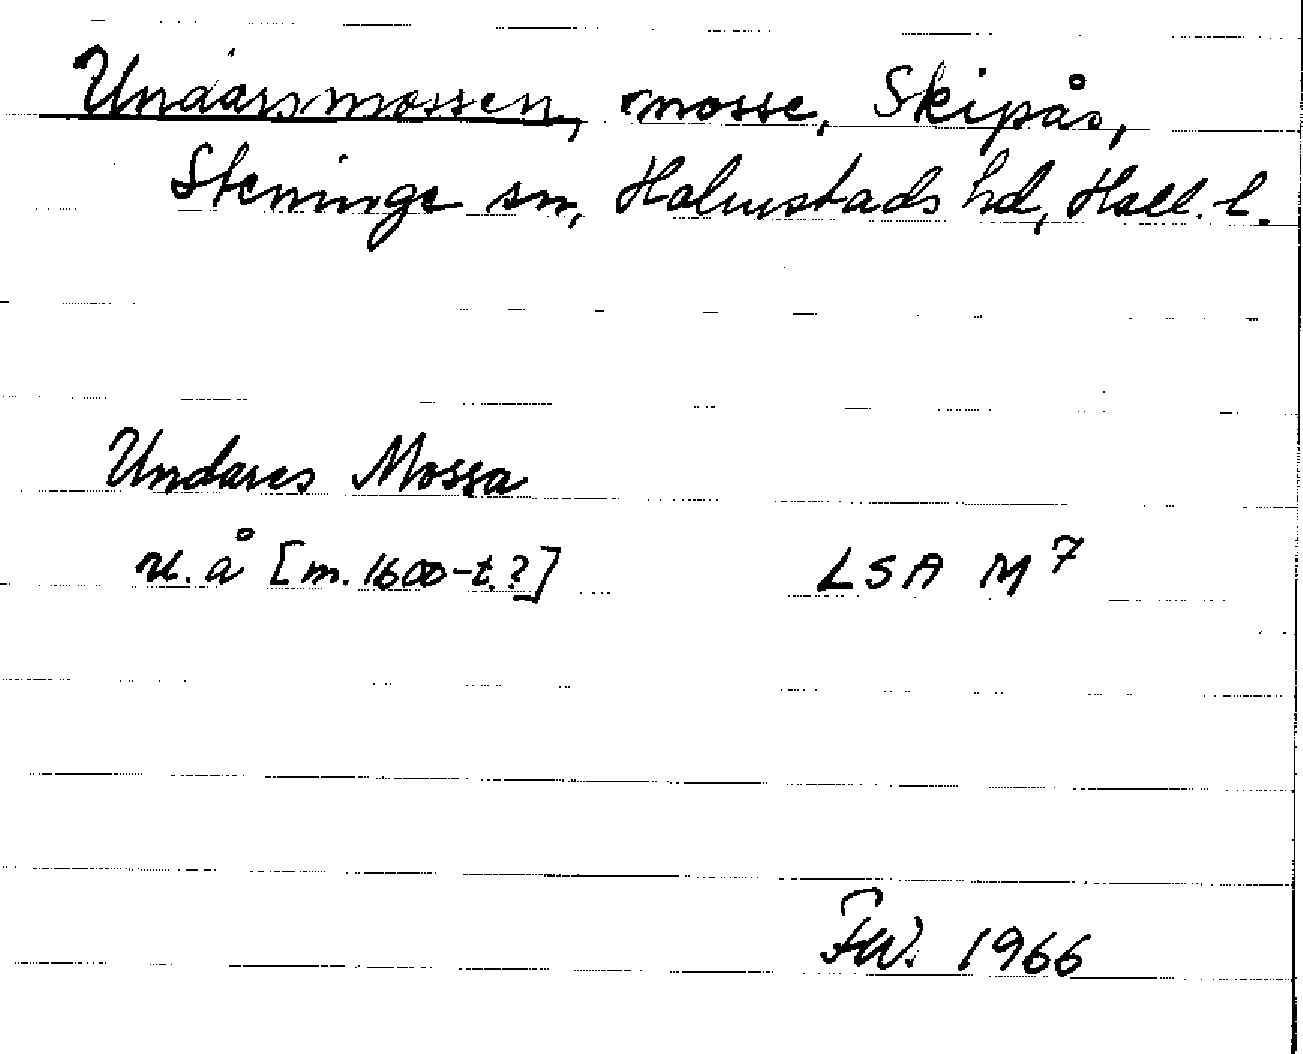 Undarsmossen, mosse, Skipås,
Steninge sn, Halmstads hd, Hall. l.
Undares Mossa
u. å [m. 1600-t.?] LSA M 7
FW. 1966